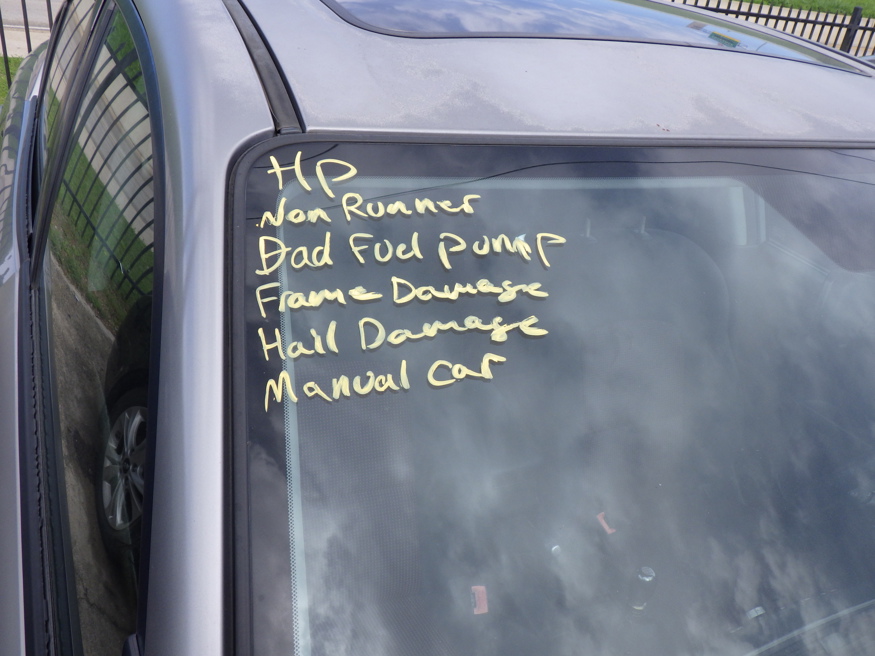 HP
Non Runner
Dad Fuel pump
Frame Damage
Hail Damage
Manual Car